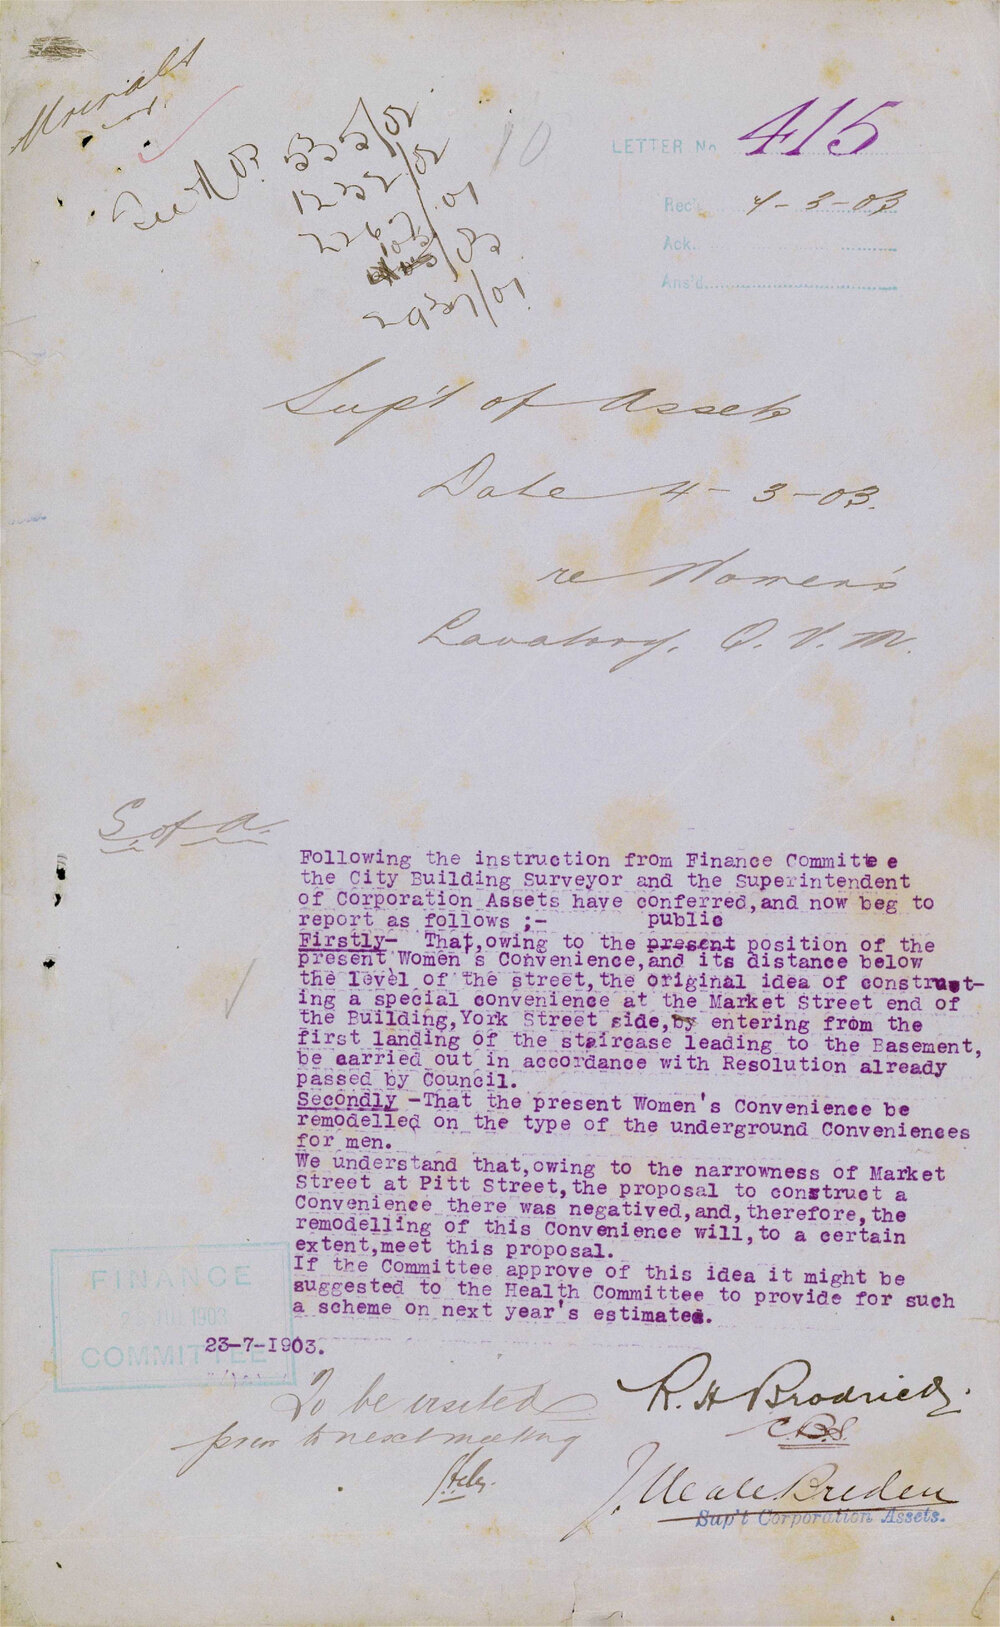 Urinals
10
LETTER No 415
Rec'd 4-3-03
Ack.
Ans'd
See
1232/02
2937/01
Sup't of Assets
Date 4-3-03.
re Women's
Lavatory. Q. V. M.
S. of A.
Following the instruction from Finance Committee
the City Building Surveyor and the Superintendent
of Corporation Assets have conferred,and now beg to
report as follows ;- public
Firstly- That,owing to the present position of the
present Women's Convenience,and its distance below
the level of the street,the original idea of construct-
ing a special convenience at the Market Street end of
the Building,York Street side,by entering from the
first landing of the staircase leading to the Basement,
be carried out in accordance with Resolution already
passed by Council.
Secondly -That the present Women's Convenience be
remodelled on the type of the underground Conveniences
for men.
We understand that,owing to the narrowness of Market
Street at Pitt Street,the proposal to construct a
Convenience there was negatived,and,therefore,the
remodelling of this Convenience will,to a certain
extent,meet this proposal.
If the Committee approve of this idea it might be
suggested to the Health Committee to provide for such
a scheme on next year's estimates.
23-7-1903.
FINANCE
1903
COMMITTEE
To be visited
prior to next meeting
R. H Brodrick.
C.B.S.
J. Neale Breden
Sup't Corporation Assets.